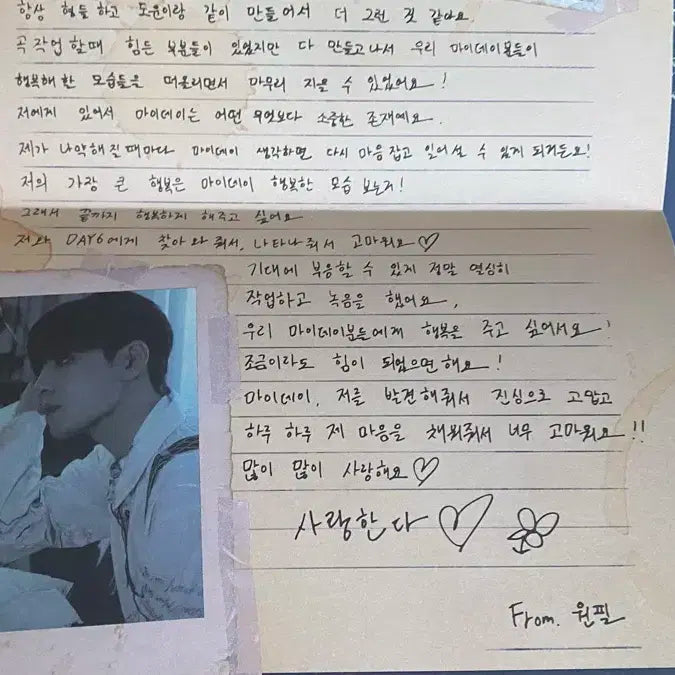 항상 형들 하고 도운이랑 같이 만들어서 더 그런 것 같아요.
곡작업 할때 힘든 부분들이 있었지만 다 만들고 나서 우리 마이데이분들이
행복해 한 모습들을 떠올리면서 마무리 지을 수 있었어요!
저에게 있어서 마이데이는 어떤 무엇보다 소중한 존재예요.
제가 나약해질 때마다 마이데이 생각하면 다시 마음 잡고 일어설 수 있게 되거든요!
저의 가장 큰 행복은 마이데이 행복한 모습 보는거!
그래서 끝까지 행복하게 해주고 싶어요
저와 DAY6에게 찾아와줘서, 나타나줘서 고마워요♡
기대에 부응할 수 있게 정말 열심히
작업하고 녹음을 했어요.
우리 마이데이분들에게 행복을 주고 싶어서요!
조금이라도 힘이 되었으면해요!
마이데이, 저를 발견해줘서 진심으로 고맙고
하루 하루 제 마음을 채워줘서 너무 고마워요!!
많이 많이 사랑해요♡
사랑한다♡
From. 원필